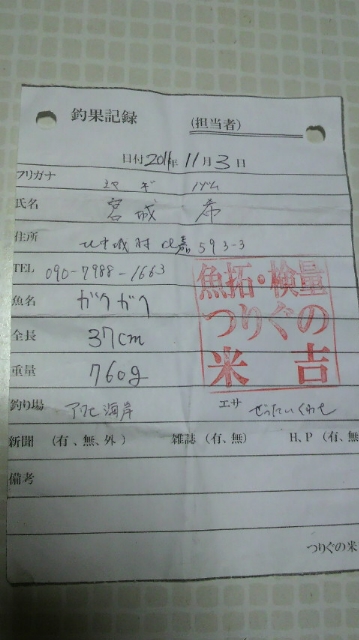 釣果記録
(担当者)
日付 2011年 11月 3日
フリガナ ミヤ ギ ノゾム
氏名 宮城 希
住所 593-3
TEL 090-7988-1663
魚名 ガクガク
全長 37cm
重量 760g
釣り場 海岸 エサ
新聞 (有、無、外) 雑誌 (有、無) H.P (有、無
備考
魚拓・検量
つりぐの
米吉
つりぐの米